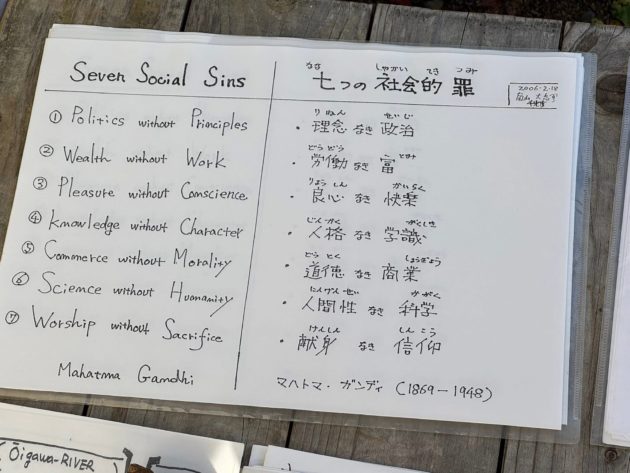 Seven Social Sins
① Politics without Principles
② Wealth without Work
③ Pleasure without Conscience
④ Knowledge without Character
⑤ Commerce without Morality
⑥ Science without Humanity
⑦ Worship without Sacrifice
Mahatma Gandhi
なな しゃかい てき つみ
七つの 社会的 罪
2006.2.18
りねん せいじ
・理念 なき 政治
ろうどう とみ
・労働 なき 富
りょうしん かいらく
・良心 なき 快楽
じんかく がくしき
・人格 なき 学識
どうとく しょうぎょう
・道徳 なき 商業
にんげんせい かがく
・人間性 なき 科学
けんしん しんこう
・献身 なき 信仰
マハトマ・ガンディ (1869-1948)
Ōigawa-RIVER